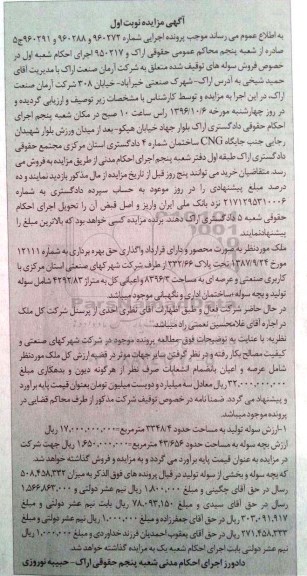 آگهی مزایده نوبت اول
به اطلاع عموم می رساند بموجب پرونده اجرایی شماره ۹۶۰۲۷۲ و ۹۶۰۲۸۸ و ۹۶۰۲۹۱ج۵
صادره از شعبه پنجم محاکم عمومی حقوقی اراک و ۹۵۰۲۱۷ اجرای احکام شعبه اول در
خصوص فروش سوله های توقیف شده متعلق به شرکت آرمان صنعت اراک با مدیریت آقای
حمید شیخی به آدرس اراک-شهرک صنعتی خیرآباد- خیابان ۳۰۸ شرکت آرمان صنعت
اراک، در این اجرا به مزایده و توسط کارشناس با مشخصات زیر توصیف و ارزیابی گردیده و
در روز چهارشنبه مورخه ۱۳۹۶/۱۰/۶ راس ساعت ۱۰ صبح در مکان شعبه پنجم اجرای
احکام حقوقی دادگستری اراک بلوار جهاد خیابان هپکو-بعد از میدان ورزش بلوار شهیدان
رجایی جنب جایگاه CNG ساختمان شماره ۲ دادگستری استان مرکزی مجتمع حقوقی
دادگستری اراک طبقه اول دفتر شعبه پنجم اجرای احکام مدنی از طریق مزایده به فروش می
رسد. متقاضیان خرید می توانند پنج روز قبل از تاریخ مزایده از مال مذکور بازدید نمایند و ده
درصد مبلغ پیشنهادی را در روز موعود به حساب سپرده دادگستری به شماره
۲۱۷۱۲۹۵۳۱۰۰۰۶ نزد بانک ملی ایران واریز و اصل فیش آن را تحویل اجرای احکام
حقوقی شعبه ۵ دادگستری اراک دهند. برنده مزایده کسی خواهد بود که بالاترین مبلغ را
پیشنهاد نمایند.
ملک موردنظر به صورت محصور و دارای قرارداد واگذاری حق بهره برداری به شماره ۱۲۱۱۱
مورخ ۱۳۸۷/۹/۲۴ تحت پلاک ۲۳۲/۶۶ از طرف شرکت شهرکهای صنعتی استان مرکزی با
کاربری صنعتی و عرصه ای به مساحت ۸۳۹۶/۳ و اعیانی کل به متراژ ۴۲۹۲/۸۳ شامل سوله
تولید و بچه سوله-ساختمان اداری و نگهبانی موجود میباشد
در حال حاضر شرکت فعال و طبق اظهارات آقای نظری احدی از پرسنل شرکت کل ملک
در اجاره آقای غلامحسین نعمتی راد میباشد.
نظریه: با عنایت به توضیحات فوق-مطالعه پرونده موجود در شرکت شهرکهای صنعتی و
کیفیت مصالح بکار رفته و در نظر گرفتن سایر جهات موثر در قضیه ارزش کل ملک موردنظر
شامل عرصه و اعیان باانضمام انشعابات صرف نظر از هرگونه دیون و بدهکاری مبلغ
۳۲،۰۰۰،۰۰۰،۰۰۰ ریال معادل سه میلیارد و دویست میلیون تومان بعنوان قیمت پایه برآورد
و پیشنهاد می گردد. ضمنا نامه در خصوص توقیف شرکت مذکور از طرف محاکم قضایی در
پرونده موجود میباشد.
۱-ارزش سوله تولید به مساحت حدود ۲۳۴۸/۴ مترمربع ۱۷،۰۰۰،۰۰۰،۰۰۰ ریال
ارزش بچه سوله به مساحت حدود ۴۳/۶۵۶ مترمربع ۱،۶۵۰،۰۰۰،۰۰۰ ریال جهت شرکت
در مزایده به عنوان قیمت پایه برآورد می گردد و به مزایده و فروش گذاشته خواهد شد.
که بچه سوله و بخشی از سوله تولید در قبال پرونده های فوق الذکر به میزان ۵۰۸،۴۵۸،۳۳۲
ریال در حق آقای چگینی و مبلغ ۱،۸۰۰،۰۰۰ ریال نیم عشر دولتی و ۱،۵۶۶،۸۶۳،۰۰۰
ریال در حق آقای سیدی و مبلغ ۷۸،۰۹۳،۱۵۰ ریال بابت نیم عشر دولتی و مبلغ
۳۰۳،۰۹۱،۹۱۷ ریال در حق آقای جعفرزاده و مبلغ ۱،۰۰۰،۰۰۰ ریال نیم عشر دولتی و مبلغ
۲۷۱،۴۵۸،۳۳۳ ریال در حق آقای یعقوب احمدیان فرزند خداوردی و مبلغ ۱،۰۰۰،۰۰۰ ریال
نیم عشر دولتی بابت اجرای احکام شعبه یک به مزایده گذاشته خواهد شد.
دادورز اجرای احکام مدنی شعبه پنجم حقوقی اراک - حبیبه نوروزی